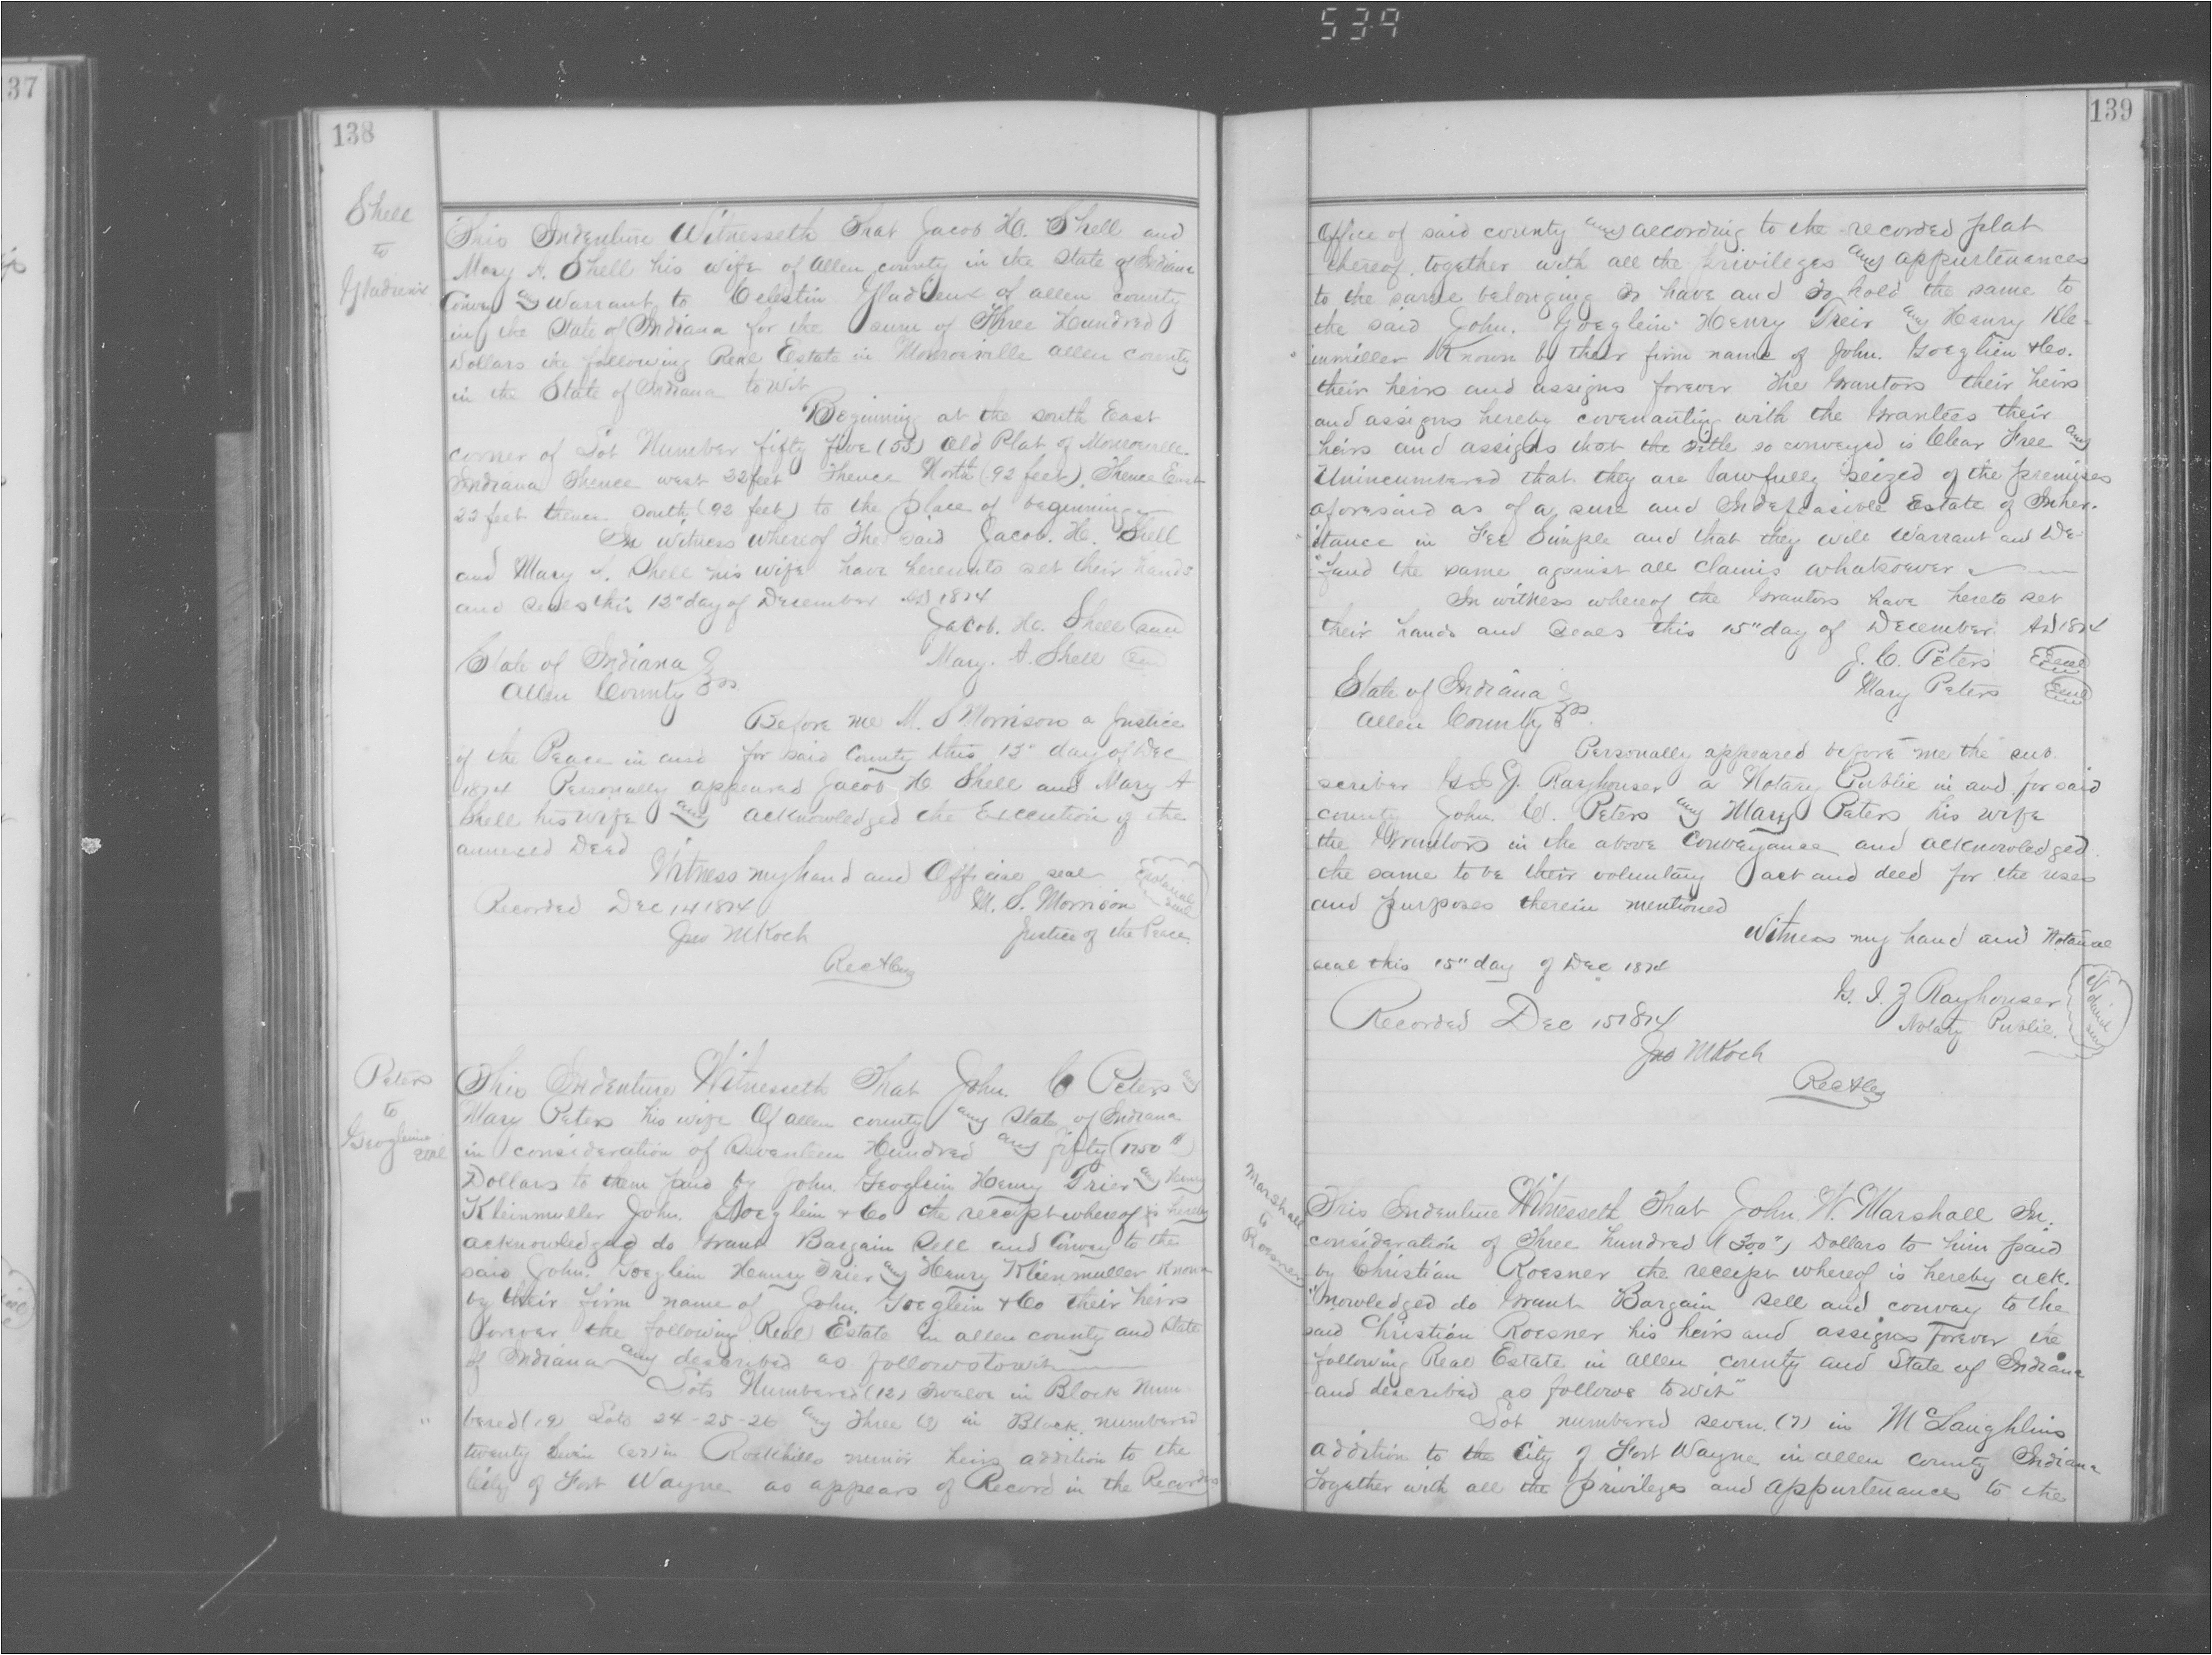 539
37
138
Shell
to
Gladieux
This Indenture Witnesseth That Jacob H. Shell and
Mary A. Shell his wife of Allen county in the State of Indiana
Convey and Warrant to Celestin Gladieux of allen county
in the State of Indiana for the sum of Three Hundred
Dollars the following Real Estate in Monroeville allen county
in the State of Indiana to wit
Beginning at the south East
corner of Lot Number fifty five (55) Old Plat of Monroeville
Indiana Thence west 22 feet Thence North (92 feet) Thence East
22 feet thence south (92 feet) to the place of beginning
In Witness whereof The said Jacob. H. Shell
and Mary A. Shell his wife have hereunto set their hands
and seals this 12" day of December AD 1874
Jacob. H. Shell seal
State of Indiana
Mary. A. Shell seal
Allen County ss
Before me M. S Morrison a Justice
of the Peace in and for said County this 12" day of Dec
1874 Personally appeared Jacob H Shell and Mary A
Shell his wife and acknowledged the Execution of the
annexed Deed
Witness my hand and Official seal
Recorded Dec 14 1874
M. S. Morrison
Notarial seal
Jno M Koch
Justice of the Peace
Rec A Co
Peters
to
Goeglein
et al
This Indenture Witnesseth That John. C Peters &
Mary Peters his wife Of allen county and State of Indiana
in consideration of Seventeen Hundred and fifty (1750
Dollars to them paid by John. Goeglein Henry Trier and Henry
Kleinmuller John. Goeglein & Co the receipt whereof is hereby
acknowledged do Grant Bargain Sell and Convey to the
said John. Goeglein Henry Trier and Henry Klienmuller Known
by their firm name of John. Goeglein & Co their heirs
forever the following Real Estate in allen county and State
of Indiana and described as follows to wit
Lots Numbered (12) Twelve in Block Num-
bered (19) Lots 24-25-26 and Three (3) in Block numbered
twenty Seven (27) in Rockhills minor heirs addition to the
City of Fort Wayne as appears of Record in the Recorders
139
Office of said county and according to the recorded plat
thereof together with all the privileges and appurtenances
to the same belonging To have and To hold the same to
the said John. Goeglein Henry Trier and Henry Kle-
inmiller Known by their firm name of John. Goeglien & Co.
their heirs and assigns forever The Grantors their heirs
and assigns hereby covenanting with the Grantees their
heirs and assigns that the title so conveyed is Clear Free and
Unincumbered that they are lawfully seized of the premises
aforesaid as of a sure and Indefeasible Estate of Inher-
itance in Fee Simple and that they will Warrant and De-
fend the same against all claims whatsoever
In witness whereof the Grantors have hereto set
their hands and seals this 15" day of December AD 1874
J. C. Peters Seal
State of Indiana
Mary Peters Seal
Allen County ss
Personally appeared before me the sub
scriber G I Z Rayhouser a Notary Public in and for said
county John. C. Peters and Mary Peters his wife
the Grantors in the above Conveyance and acknowledged
the same to be their voluntary act and deed for the uses
and purposes therein mentioned
Witness my hand and Notarial
seal this 15" day of Dec 1874
G. I. Z Rayhouser
Notarial seal
Recorded Dec 15 1874
Notary Public
Jno M Koch
Rec A Co
Marshall
to
Roesner
This Indenture Witnesseth That John. W. Marshall In
consideration of Three hundred (300") Dollars to him paid
by Christian Roesner the receipt whereof is hereby ack-
nowledged do Grant Bargain sell and convey to the
said Christian Roesner his heirs and assigns forever the
following Real Estate in allen county and State of Indiana
and described as follows to wit"
Lot numbered seven (7) in McLaughlins
addition to the City of Fort Wayne in allen county Indiana
Together with all the privileges and appurtenances to the